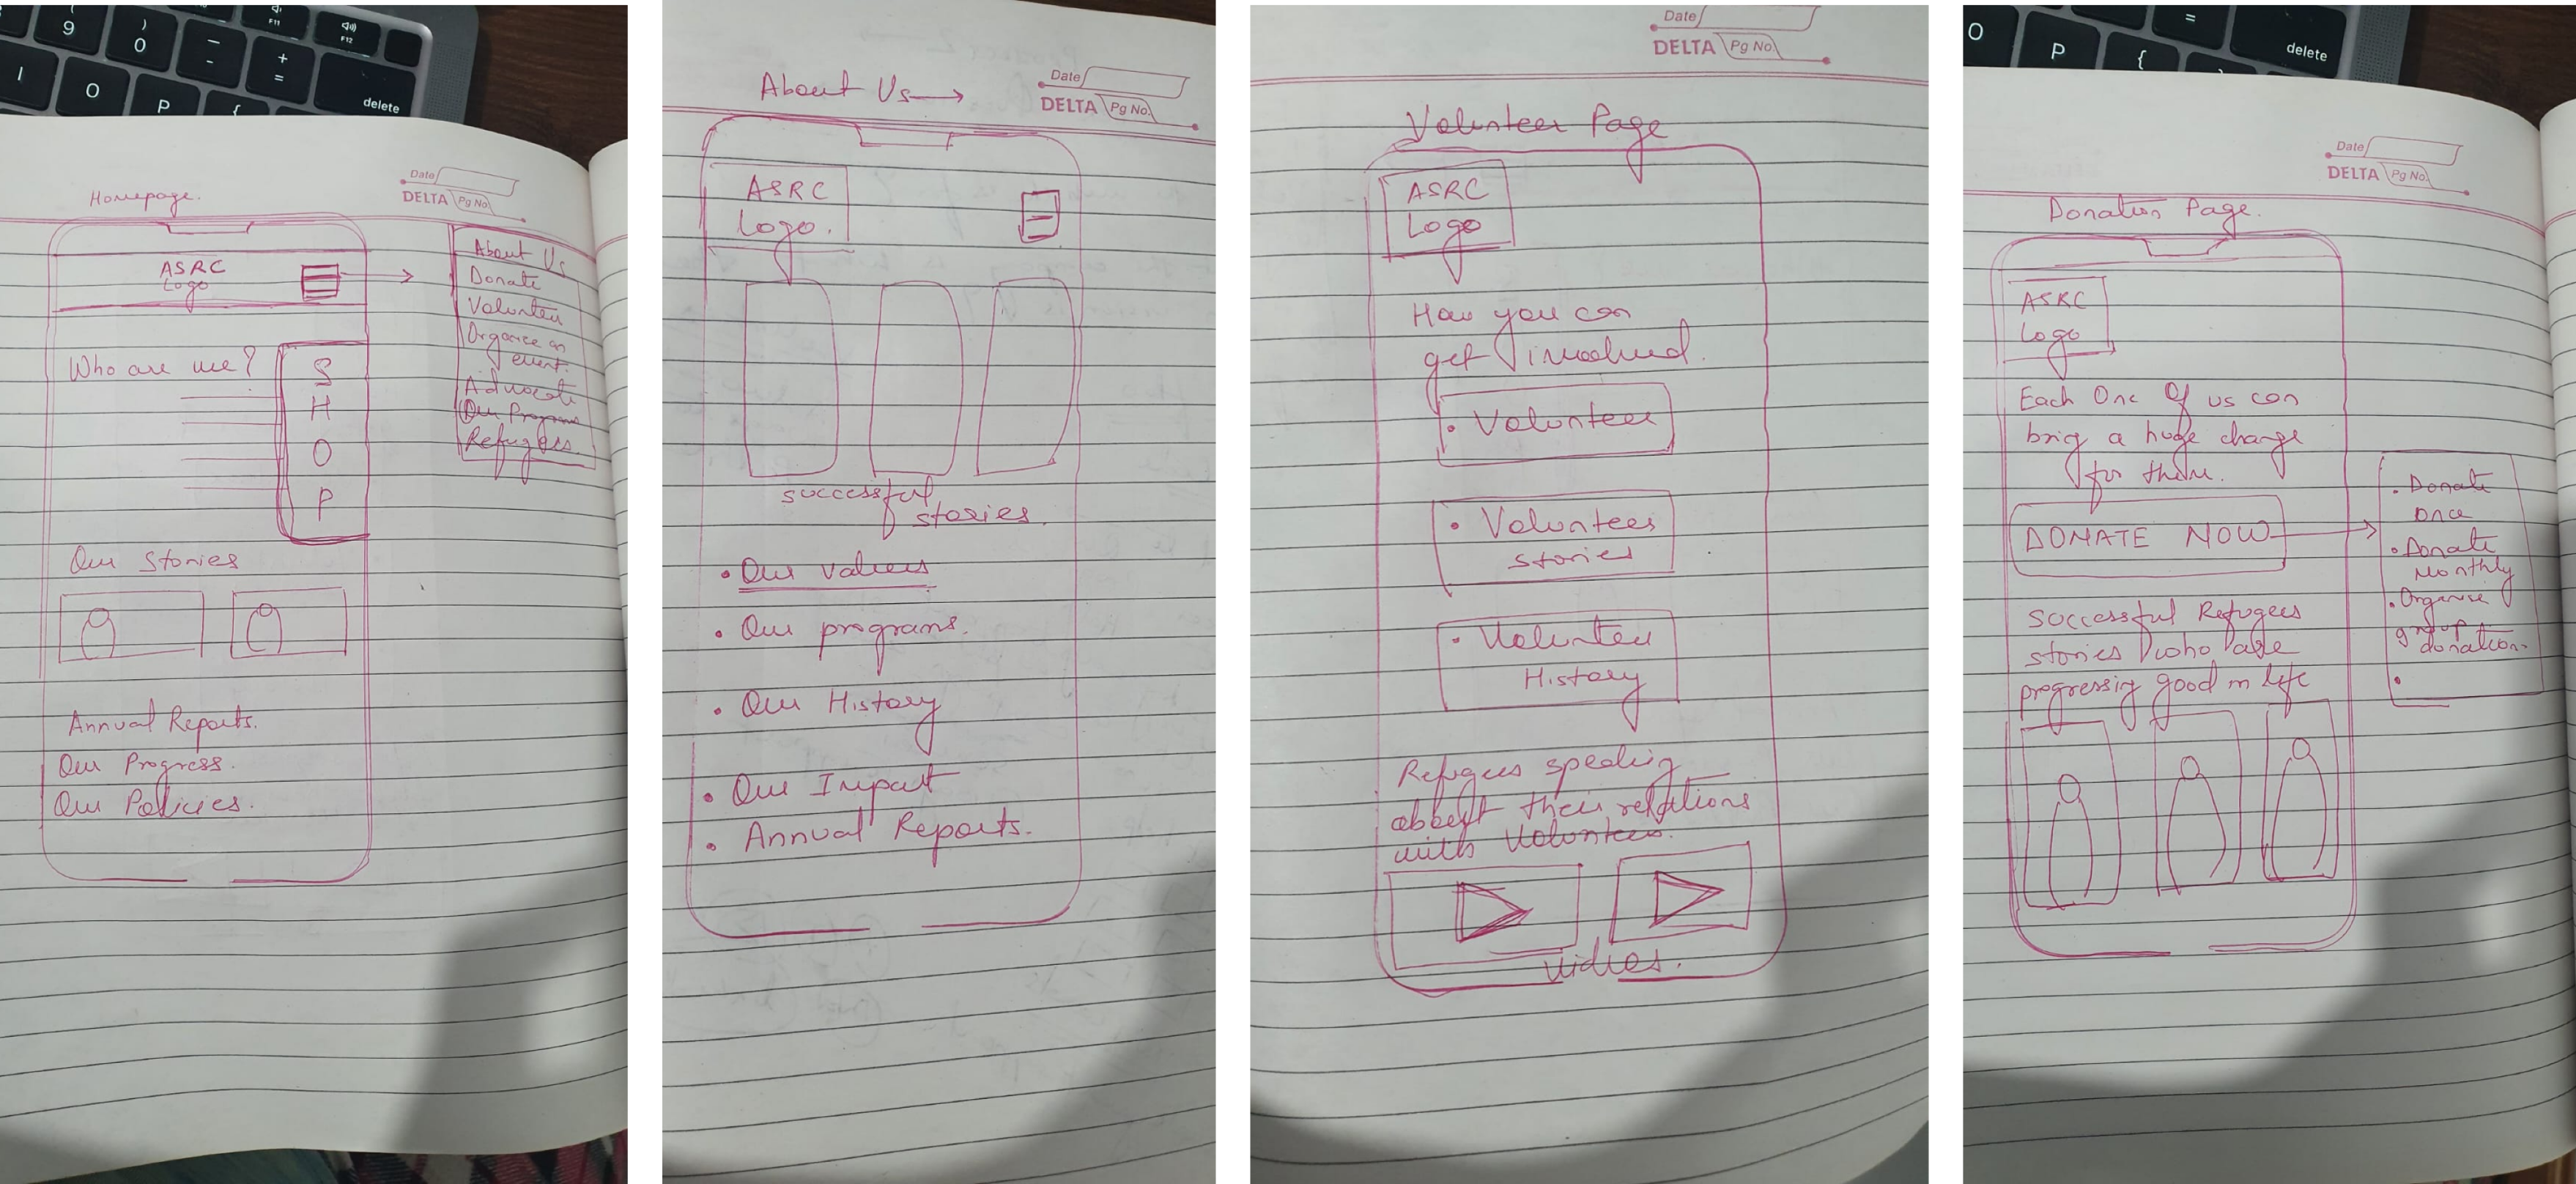 9
)
0
—
-
+
=
F11
F12
I
O
P
{
delete
Date
DELTA Pg No.
Homepage.
ASRC
Logo
About Us
Donate
Volunteer
Organise an
event.
Advocate
Our Programs
Refugees.
Who are we?
S
H
O
P
Our Stories
Annual Reports.
Our Progress.
Our Policies.
About Us
Date
DELTA Pg No.
ASRC
Logo.
successful
stories.
• Our values
• Our programs.
• Our History
• Our Impact
• Annual Reports.
Date
DELTA Pg No.
Volunteer Page
ASRC
Logo
How you can
get involved.
• Volunteer
• Volunteers
stories
• Volunteer
History
Refugees speaking
about their relations
with Volunteers.
videos.
O
P
{
=
delete
Date
DELTA Pg No.
Donation Page.
ASRC
Logo
Each One Of us can
brig a huge change
for them.
DONATE NOW
• Donate
once
• Donate
Monthly
• Organise
group
donation.
•
successful Refugees
stories who are
progressing good in life